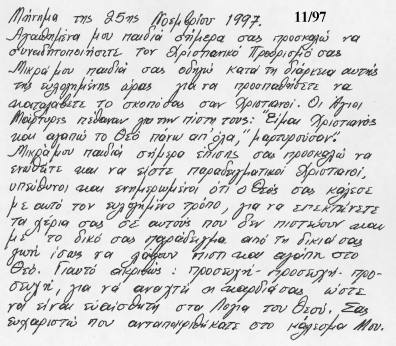 Μήνυμα της 25ης Νοεμβρίου 1997. 11/97
Αγαπημένα μου παιδιά σήμερα σας προσκαλώ να
συνειδητοποιήσετε τον Χριστιανικό Προορισμό σας
Μικρά μου παιδιά σας οδηγώ κατά τη διάρκεια αυτής
της ευλογημένης ώρας για να προσπαθήσετε να
καταλάβετε το σκοπό σας σαν Χριστιανοί. Οι Άγιοι
Μάρτυρες πέθαναν για την πίστη τους: Είμαι Χριστιανός
και αγαπώ το Θεό πάνω απ' όλα, "μαρτυρούσαν".
Μικρά μου παιδιά σήμερα επίσης σας προσκαλώ να
ενωθείτε και να είστε παραδειγματικοί Χριστιανοί,
υπεύθυνοι και ενημερωμένοι ότι ο Θεός σας κάλεσε
με αυτό τον ευλογημένο τρόπο, για να επεκτείνετε
τα χέρια σας σε αυτούς που δεν πιστεύουν και
με το δικό σας παράδειγμα από τη δικιά σας
ζωή ίσως να λάβουν πίστη και αγάπη στο
Θεό. Γιαυτό ακριβώς: προσευχή - προσευχή - προ-
σευχή, για να ανοιχτή η καρδιά σας, ώστε
να είναι ευαίσθητη στα Λόγια του Θεού. Σας
ευχαριστώ που ανταποκριθήκατε στο κάλεσμα Μου.